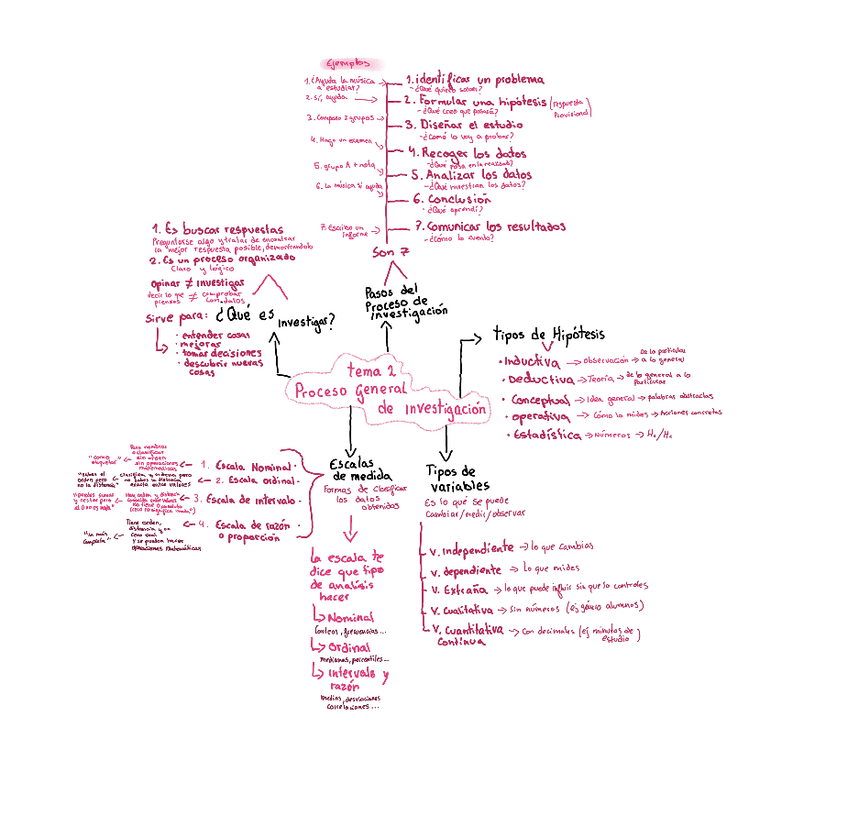 Ejemplos
1. ¿Ayuda la música
a estudiar?
2. Sí, ayuda
3. Comparo 2 grupos
4. Hago un examen
5. grupo A + nota
6. La música sí ayuda
7. Escribo un
informe
1. identificar un problema
- ¿Qué quiero saber?
2. Formular una hipótesis (respuesta
Provisional)
- ¿Qué creo que pasará?
3. Diseñar el estudio
- ¿Cómo lo voy a probar?
4. Recoger los datos
- ¿Qué pasa en la realidad?
5. Analizar los datos
- ¿Qué muestran los datos?
6. Conclusión
- ¿Qué aprendí?
7. Comunicar los resultados
- ¿Cómo lo cuento?
Son 7
Pasos del
Proceso de
investigación
1. Es buscar respuestas
Preguntarse algo y tratar de encontrar
la mejor respuesta posible, demostrandolo
2. Es un proceso organizado
Claro y lógico
opinar ≠ investigar
decir lo que ≠ comprobar
piensas con datos
Sirve para:
• entender cosas
• mejorar
• tomar decisiones
• descubrir nuevas
cosas
¿Qué es
investigar?
tema 2
Proceso General
de investigación
Tipos de Hipótesis
• Inductiva → observación → De lo particular
a lo general
• Deductiva → Teoría → de lo general a lo
particular
• Conceptual → Idea general → palabras abstractas
• operativa → Cómo la mides → Acciones concretas
• Estadística → Números → H₀/H₁
Escalas
de medida
Formas de clasificar
los datos
obtenidos
1. Escala Nominal •
Para nombrar
o clasificar
sin orden
sin operaciones
matemáticas
"como
etiquetas"
2. Escala ordinal •
clasifica y ordena pero
no sabes la distancia
exacta entre valores
"sabes el
orden pero
no la distancia"
3. Escala de intervalo •
Hay orden y distancia
no tiene 0 absoluto
"puedes sumar
y restar pero
el 0 no es nada"
4. Escala de razón
o proporción
Tiene orden,
distancia y un
cero real
y se pueden hacer
operaciones matemáticas
"La más
completa"
La escala te
dice que tipo
de analisis
hacer
Nominal
Conteos, frecuencias...
Ordinal
medianas, percentiles...
Intervalo y
razón
medias, desviaciones
correlaciones...
Tipos de
variables
Es lo que se puede
Cambiar/medir/observar
V. Independiente → lo que cambias
V. dependiente → lo que mides
V. Extraña → lo que puede influir sin que lo controles
V. Cualitativa → Sin números (ej género alumnos)
V. Cuantitativa → Con decimales (ej minutos de
estudio)
Continua